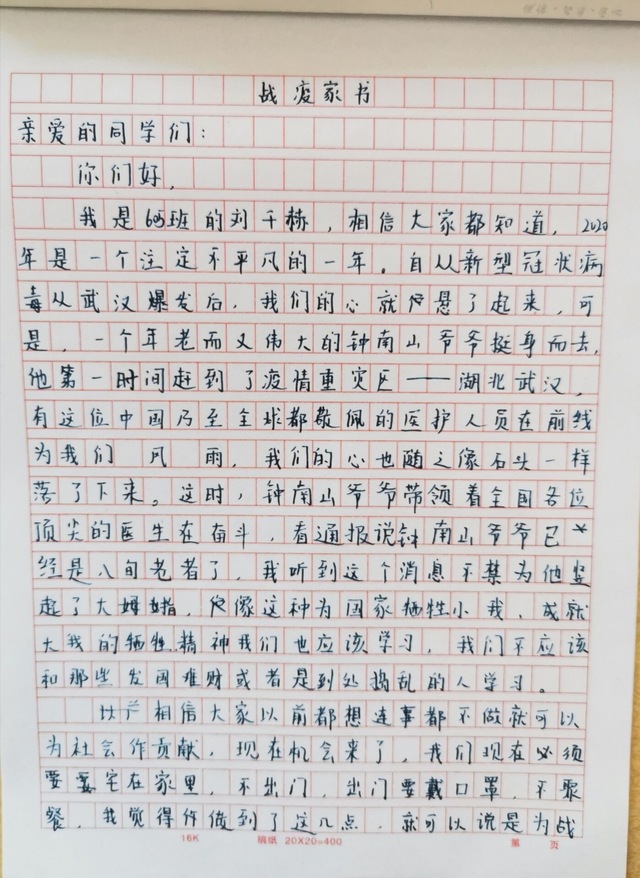 战疫家书
亲爱的同学们：
你们好，
我是605班的刘千栋，相信大家都知道，2020
年是一个注定不平凡的一年。自从新型冠状病
毒从武汉爆发后，我们的心就便悬了起来，可
是，一个年老而又伟大的钟南山爷爷挺身而去，
他第一时间赶到了疫情重灾区——湖北武汉，
有这位中国乃至全球都敬佩的医护人员在前线
为我们 风 雨，我们的心也随之像石头一样
落了下来。这时，钟南山爷爷带领着全国各位
顶尖的医生在奋斗，看通报说钟南山爷爷已
经是八旬老者了，我听到这个消息不禁为他竖
起了大姆指，像这种为国家牺牲小我，成就
大我的牺牲精神我们也应该学习，我们不应该
和那些发国难财或者是到处捣乱的人学习。
相信大家以前都想连事都不做就可以
为社会作贡献，现在机会来了，我们现在必须
要要宅在家里，不出门，出门要戴口罩，不聚
餐，我觉得你做到了这几点，就可以说是为战
16K 稿纸 20X20=400 第 页